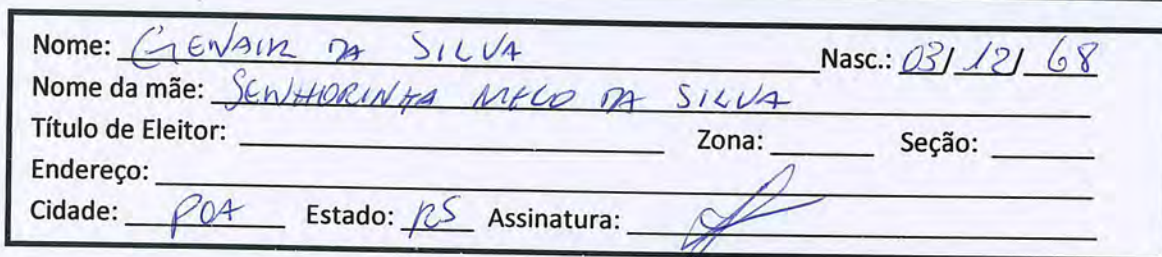 Nome: GENAIR DA SILVA Nasc.: 03/12/68
Nome da mãe: SENHORINHA MELO DA SILVA
Título de Eleitor: Zona: Seção:
Endereço:
Cidade: POA Estado: RS Assinatura: